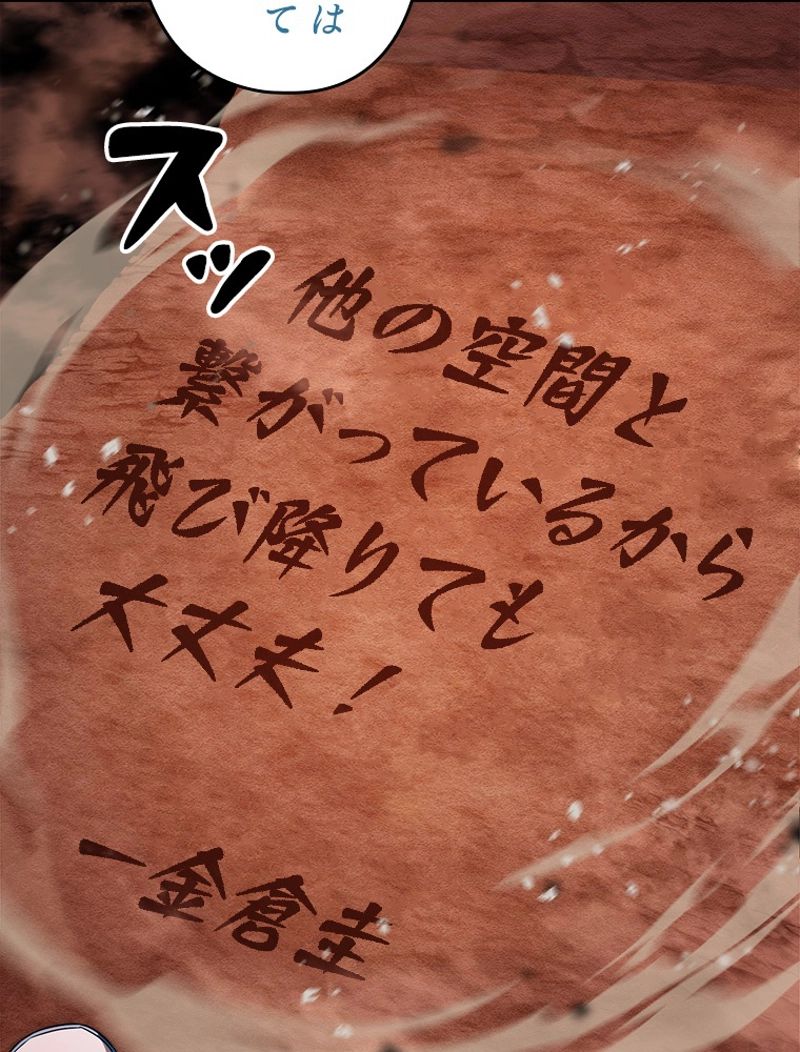 ては
スッ
他の空間と
繋がっているから
飛び降りても
大丈夫！
ー金倉圭